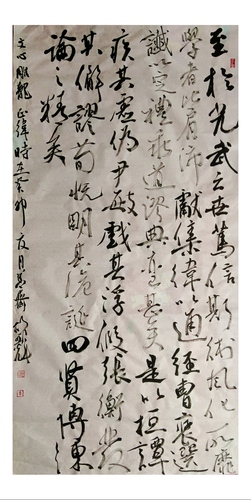 至於光武之世篤信斯術風化所靡
學者比肩沛獻集緯以通經曹褒選
讖以定禮乖道謬典亦甚矣是以桓譚
疾其虛偽尹敏戲其浮假張衡發
其僻謬荀悅明其詭誕四賢博練
論之精矣
文心雕龍正緯時在癸卯夏月